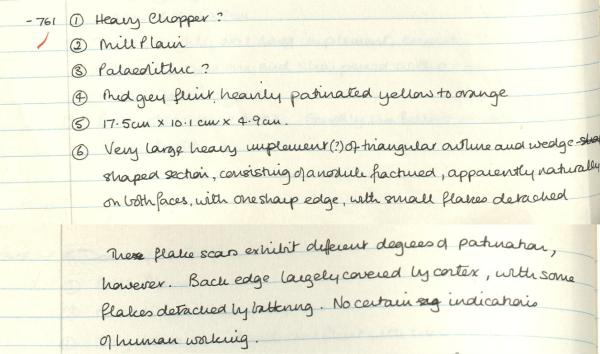 - 761 ① Heavy Chopper ?
② Mill Plain
③ Palaeolithic ?
④ Mid grey flint, heavily patinated yellow to orange
⑤ 17.5cm x 10.1cm x 4.9cm.
⑥ Very large heavy implement(?) of triangular outline and wedge-
shaped section, consisting of a nodule fractured, apparently naturally
on both faces, with one sharp edge, with small flakes detached
These flake scars exhibit different degrees of patination,
however. Back edge largely covered by cortex, with some
flakes detached by battering. No certain indications
of human working.